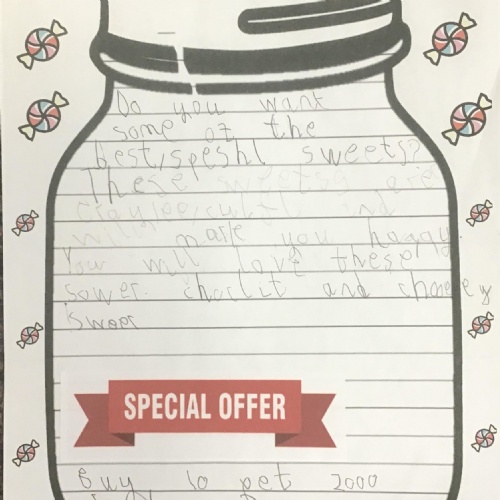 Do you want
some of the
best, speshl sweets?
These sweets are
and
will make you happy.
You will love these
sower. choclit and
sweet
SPECIAL OFFER
Buy 10 get 2000